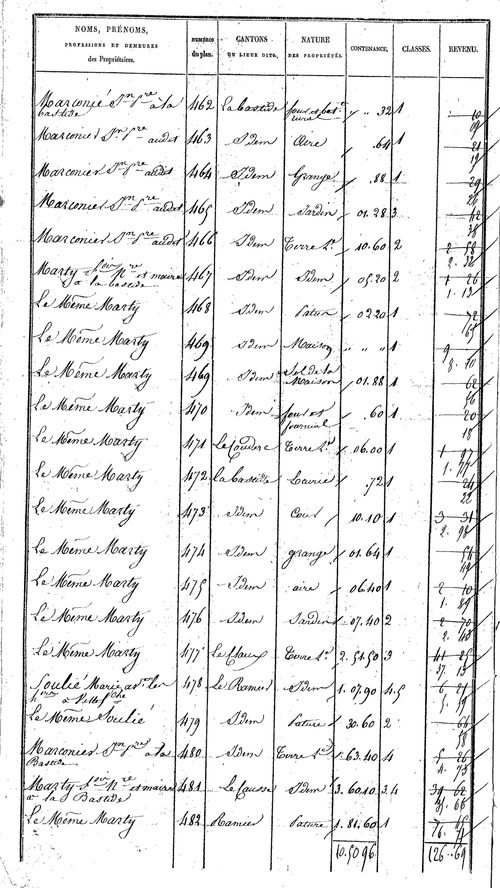 NOMS, PRÉNOMS, PROFESSIONS ET DEMEURES des Propriétaires. NUMÉROS du plan. CANTONS OU LIEUX DITS. NATURE DES PROPRIÉTÉS. CONTENANCE. CLASSES. REVENU.
Marconié Jn pre à la bastide 462 La bastide 32 1 10
Marconier Jn pre audit 463 Idem Aire .64 1 21
19
Marconier Jn pre audit 464 Idem Grange .88 1 29
Marconier Jn pre audit 465 Idem Jardin 01.28 3 42
38
Marconier Jn pre audit 466 Idem Terre 10.60 2 2 58
2. 32
Marty et maire à la bastide 467 Idem Idem 05.20 2 1 26
1. 13
Le Même Marty 468 Idem Pature 02.20 1 72
65
Le Même Marty 469 Idem Maison " " " 1 9
8. 10
Le Même Marty 469 Idem Sol de la Maison 01.88 1 62
56
Le Même Marty 470 Idem four et .60 1 20
18
Le Même Marty 471 Le Couderc Terre 06.00 1 1 97
1. 77
Le Même Marty 472 La bastide .72 1 24
22
Le Même Marty 473 Idem Cour 10.10 1 3 31
2. 98
Le Même Marty 474 Idem grange 01.64 1 54
49
Le Même Marty 475 Idem aire 06.40 1 2 10
1. 89
Le Même Marty 476 Idem Jardin 07.40 2 2 70
2. 43
Le Même Marty 477 Le Claux Terre 2.51.50 3 41 25
37. 13
Soulié Marie 478 Le Ramier Idem 1.07.90 4.5 6 21
5. 59
Le Même Soulié 479 Idem Pature 30.60 2
Marconier Jn pre à la Bastide 480 Idem Terre 63.40 4 5 26
4. 73
Marty et maire à la Bastide 481 Le Causse Idem 3.60.10 3.4 39 62
35. 66
Le Même Marty 482 Ramier Pature 1.81.60 1
10.50 96 126.69